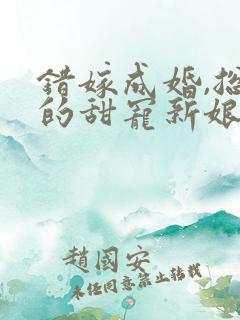 错嫁成婚,总
的甜宠新娘
趙國安
未经同意禁止转载